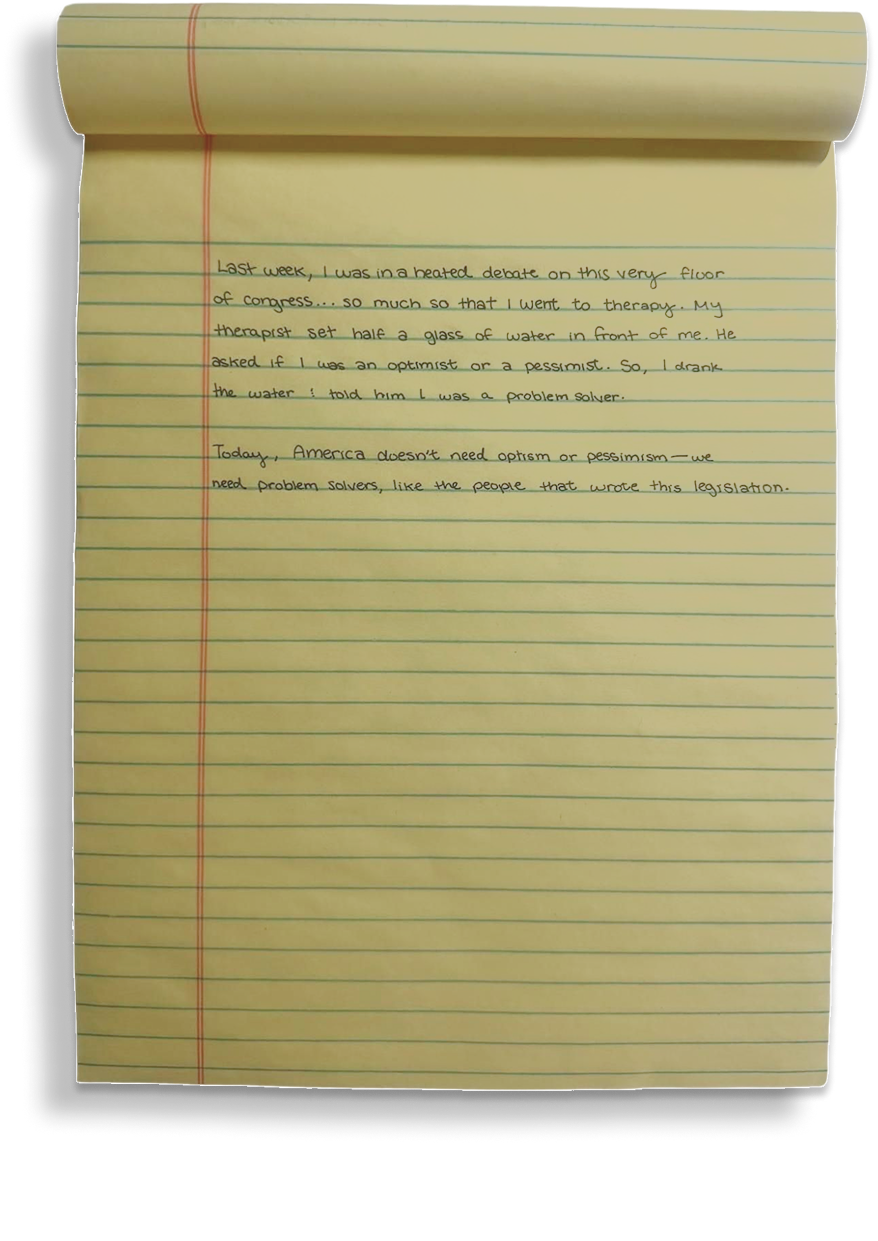 Last week, I was in a heated debate on this very floor
of congress... so much so that I went to therapy. My
therapist set half a glass of water in front of me. He
asked if I was an optimist or a pessimist. So, I drank
the water & told him I was a problem solver.
Today, America doesn't need optism or pessimism—we
need problem solvers, like the people that wrote this legislation.